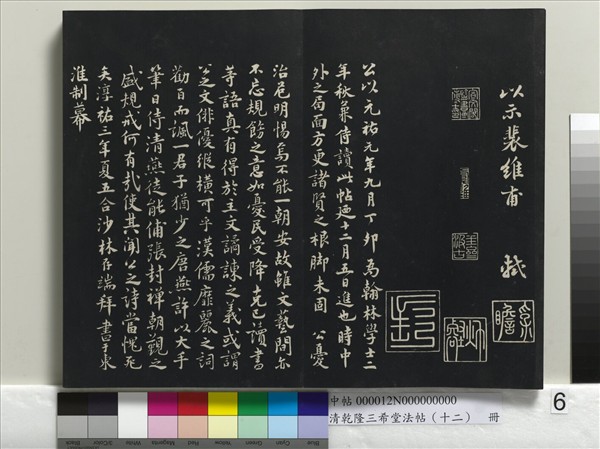 以示裴維甫 軾
公以元祐元年九月丁卯為翰林學士三
年秋兼侍讀此帖迺十二月五日進也時中
外之局面方更諸賢之根腳未固 公憂
治危明惕焉不能一朝安故雖文藝間亦
不忘規飭之意如憂民受降克己讀書
等語真有得於主文譎諫之義或謂
公之文俳優縱橫可乎漢儒靡麗之詞
勸百而諷一君子猶少之唐燕許以大手
筆日侍清燕徒能俌張封禪朝覲之
盛規戒何有哉使其聞公之詩當愧死
矣淳祐三年夏五合沙林存端拜書于東
淮制幕
中帖 000012N000000000
清乾隆三希堂法帖（十二） 冊
6
Black 3/Color White Magenta Red Yellow Green Cyan Blue